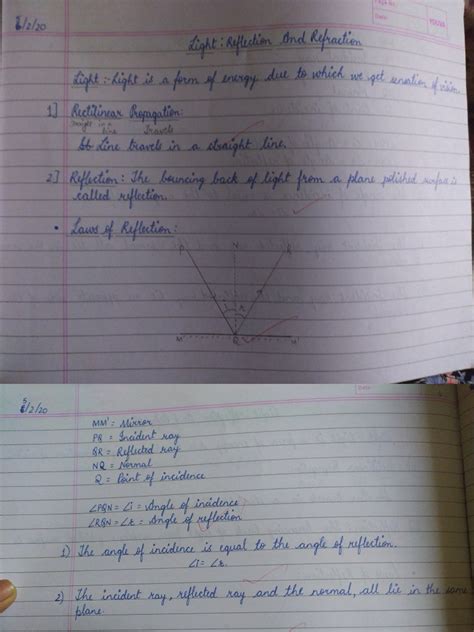 5/2/20
Page No.
Date
Light : Reflection And Refraction
Light :- Light is a form of energy due to which we get sensation of vision.
1] Rectilinear Propagation:
Straight in a line Travels
Line travels in a straight line.
2] Reflection : The bouncing back of light from a plane polished surface is
called reflection.
• Laws of Reflection :
P N R
i r
M Q M'
5/2/20
MM' = Mirror
PQ = Incident ray
QR = Reflected ray
NQ = Normal
Q = Point of incidence
∠PQN = ∠i = Angle of incidence
∠RQN = ∠r = Angle of reflection
1) The angle of incidence is equal to the angle of reflection.
∠i = ∠r.
2) The incident ray, reflected ray and the normal, all lie in the same
plane.